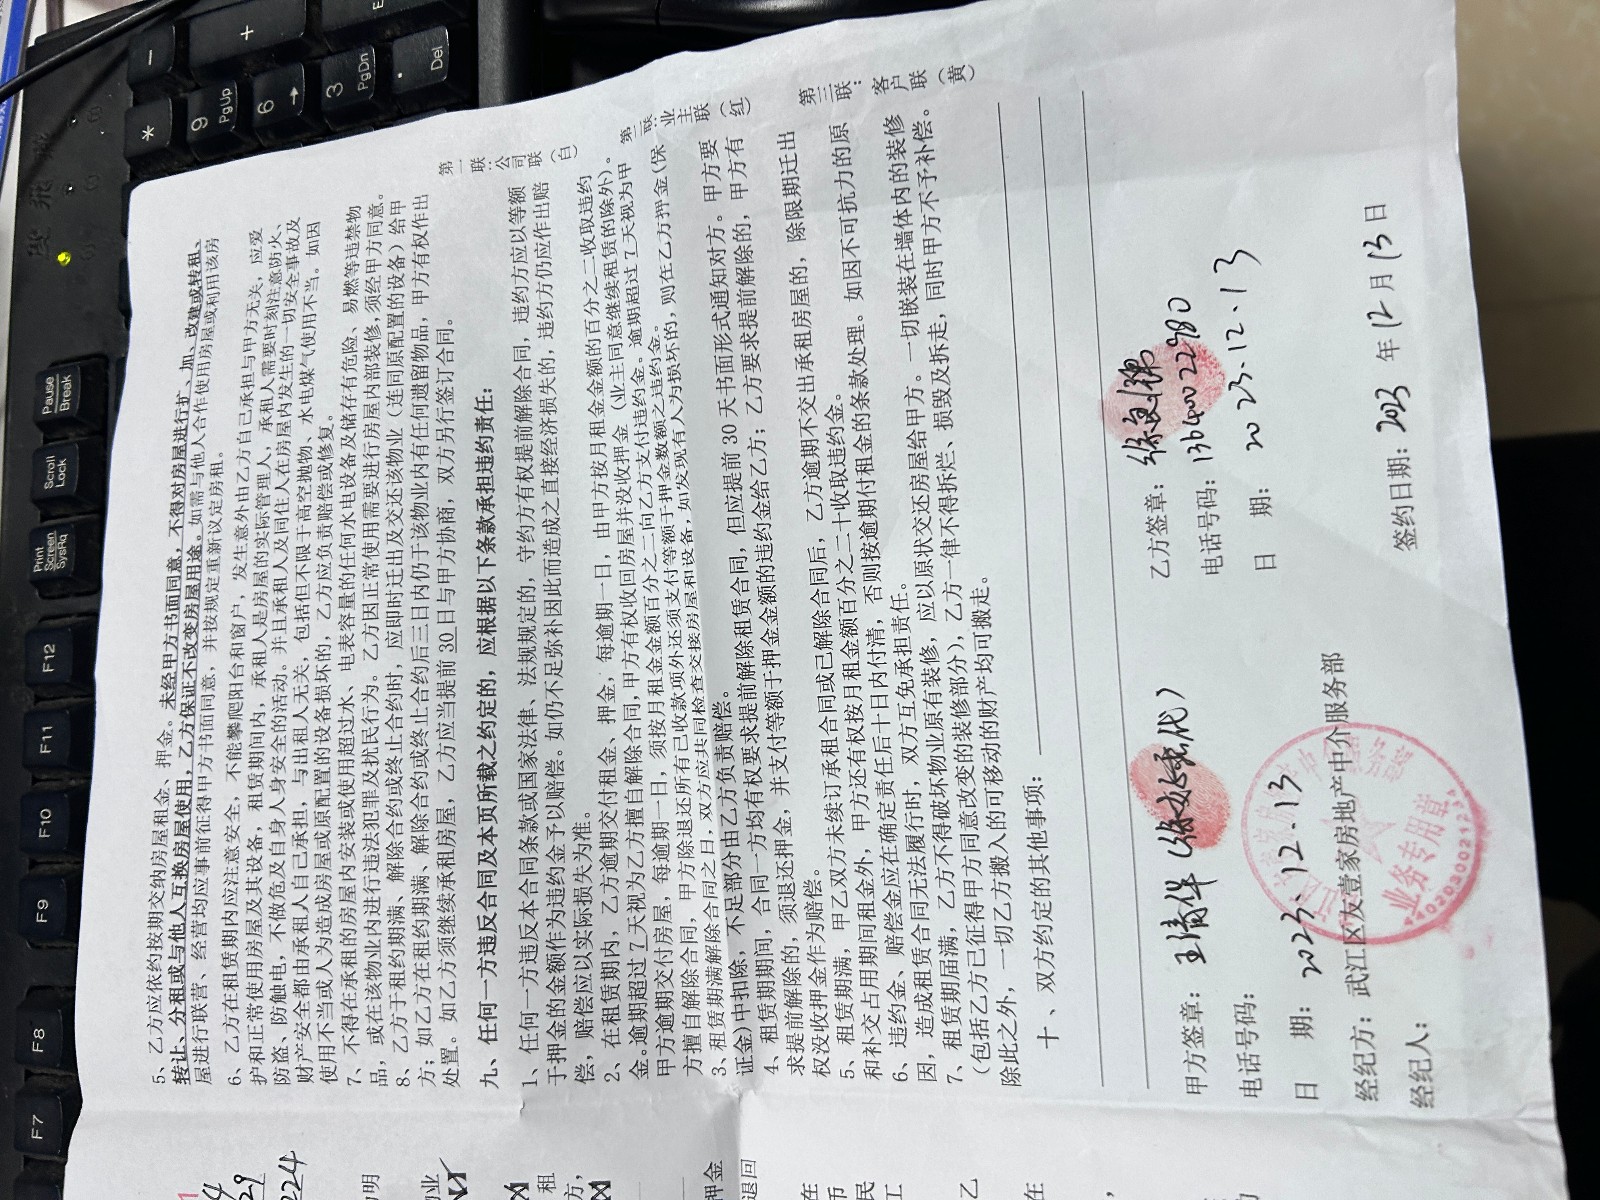 5、乙方应依约按期交纳房屋租金、押金。未经甲方书面同意，不得对房屋进行扩、加、改建或转租、
转让、分租或与他人互换房屋使用，乙方保证不改变房屋用途。如需与他人合作使用房屋或利用该房
屋进行联营、经营均应事前征得甲方书面同意，并按规定重新议定房租。
6、乙方在租赁期内应注意安全，不能攀爬阳台和窗户，发生意外由乙方自己承担与甲方无关，应爱
护和正常使用房屋及其设备，租赁期间内，承租人是房屋的实际管理人，承租人需要时刻注意防火、
防盗、防触电，不做危及自身人身安全的活动。并且承租人及同住人在房屋内发生的一切安全事故及
财产安全都由承租人自己承担，与出租人无关，包括但不限于高空抛物、水电煤气使用不当。如因
使用不当或人为造成房屋或原配置的设备损坏的，乙方应负责赔偿或修复。
7、不得在承租的房屋内安装或使用超过水、电表容量的任何水电设备及储存有危险、易燃等违禁物
品，或在该物业内进行违法犯罪及扰民行为。乙方因正常使用需要进行房屋内部装修,须经甲方同意。
8、乙方于租约期满、解除合约或终止合约时，应即时迁出及交还该物业（连同原配置的设备）给甲
方；如乙方在租约期满、解除合约或终止合约后三日内仍于该物业内有任何遗留物品，甲方有权作出
处置。如乙方须继续承租房屋，乙方应当提前 30 日与甲方协商，双方另行签订合同。
九、任何一方违反合同及本页所载之约定的，应根据以下条款承担违约责任：
1、任何一方违反本合同条款或国家法律、法规规定的，守约方有权提前解除合同，违约方应以等额
于押金的金额作为违约金予以赔偿。如仍不足弥补因此而造成之直接经济损失的，违约方仍应作出赔
偿，赔偿应以实际损失为准。
2、在租赁期内，乙方逾期交付租金、押金，每逾期一日，由甲方按月租金金额的百分之二收取违约
金。逾期超过 7 天视为乙方擅自解除合同，甲方有权收回房屋并没收押金（业主同意继续租赁的除外）。
甲方逾期交付房屋，每逾期一日，须按月租金金额百分之二向乙方支付违约金。逾期超过 7 天视为甲
方擅自解除合同，甲方除退还所有已收款项外还须支付等额于押金数额之违约金。
3、租赁期满解除合同之日，双方应共同检查交接房屋和设备，如发现有人为损坏的，则在乙方押金(保
证金)中扣除，不足部分由乙方负责赔偿。
4、租赁期期间，合同一方均有权要求提前解除租赁合同，但应提前 30 天书面形式通知对方。甲方要
求提前解除的，须退还押金，并支付等额于押金金额的违约金给乙方；乙方要求提前解除的，甲方有
权没收押金作为赔偿。
5、租赁期满，甲乙双方未续订承租合同或已解除合同后，乙方逾期不交出承租房屋的，除限期迁出
和补交占用期间租金外，甲方还有权按月租金额百分之二十收取违约金。
6、违约金、赔偿金应在确定责任后十日内付清，否则按逾期付租金的条款处理。如因不可抗力的原
因，造成租赁合同无法履行时，双方互免承担责任。
7、租赁期届满，乙方不得破坏物业原有装修，应以原状交还房屋给甲方。一切嵌装在墙体内的装修
（包括乙方已征得甲方同意改变的装修部分），乙方一律不得拆烂、损毁及拆走，同时甲方不予补偿。
除此之外，一切乙方搬入的可移动的财产均可搬走。
十、双方约定的其他事项：
第一联：公司联（白）
第二联：业主联（红）
第三联：客户联（黄）
甲方签章：王清华（徐
代）
乙方签章：徐
电话号码：
电话号码：13640022980
日 期：2023.12.13
日 期：2023.12.13
经纪方：武江区发壹家房地产中介服务部
经纪人：
签约日期：2023 年 12 月 13 日
业务专用章
29
224
押金
退回
度飛
F7
F8
F9
F10
F11
F12
Print Screen SysRq
Scroll Lock
Pause Break
-
+
*
9 PgUp
6 →
3 PgDn
. Del